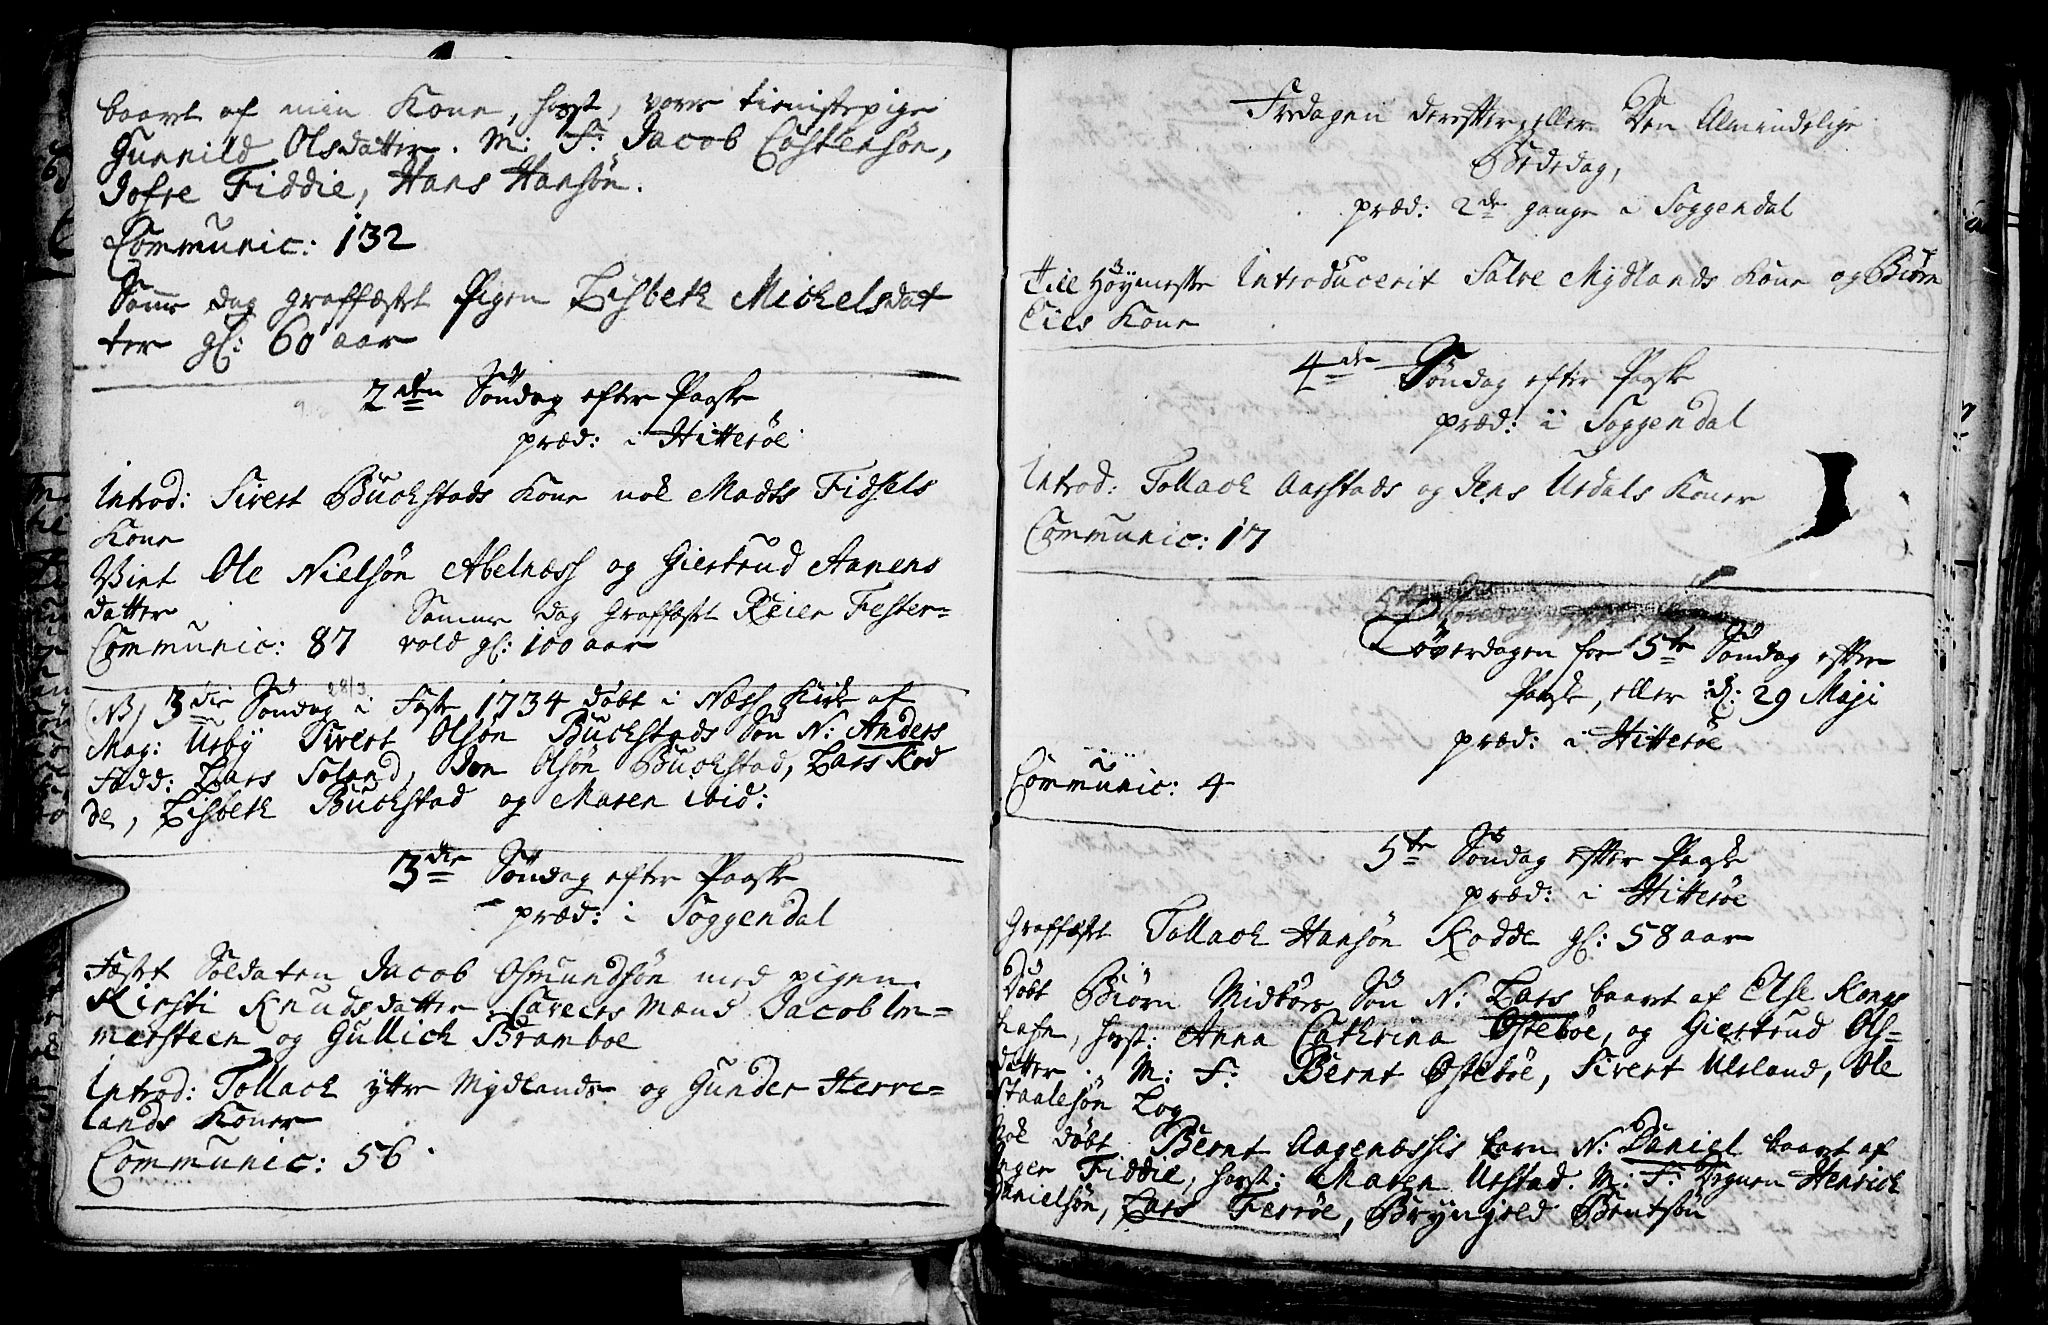 baaret af min Kone, hosst, vores tienistepige
Gunnild Olsdatter. M: F: Jacob Costensøn,
Josse Fiddie, Hans Hansøn.
Communic: 132
Samme dag graffæstet Pigen Lisbeth Michelsdat
ter gl: 60 aar
2den Søndag efter Paaske
præd: i Hitterøe
Introd: Sivert Buchstads Kone nok Madts Fidsels
Kone
Viet Ole Nielsøn Abelnæss og Giertrud Aanens
datter
Samme dag Graffæst Reier Fester=
Communic: 87 vold gl: 100 aar
NB) 3die Søndag i Faste 1734 døbt i Næss Kirke af
28/3
Mag: Urby Sivert Olsøn Buchstads Søn N: Anders
Fadd: Lars Soland, Jon Olsøn Buchstad, Lars Rod
de, Lisbeth Buchstad og Maren ibid:
3die Søndag efter Paaske
præd: i Soggendal
Fæstet Soldaten Jacob Osmundsøn med pigen
Kirsti Knudsdatter Caveers Mænd Jacob Im=
mersteen og Gullich Bramboe
Introd: Tollach ytre Mydlands og Gunder Herre=
lands Koner
Communic: 56
Fredagen derefter, eller Den Almindelige
Bededag,
præd: 2de gange i Soggendal
Till Høymesse Introducerit Salve Mydlands Kone og Biørn
Eies Kone
4de Søndag efter Paaske
præd: i Soggendal
Introd: Tollach Aarstads og Jens Urdals Koner
Communic: 17
Løverdagen for 5te Søndag efter
Paaske, eller d: 29 Maji
præd: i Hitterøe
Communic: 4
5te Søndag efter Paaske
præd: i Hitterøe
Graffæstet Tollach Hansøn Rodde gl: 58 aar
Døbt Biørn Midbøes Søn N: Lars baaret af Else Kongs
hafn, hosst: Anna Cathrina Østebøe, og Giertrud Ols=
datter. M: F: Bernt Østebøe, Sivert Ulsland, Ole
Staalesøn Log
Nok døbt Bernt Aagenæssis barn N: Daniel baaret af
Inger Fiddie, hosst: Maren Urstad. M: F: Degnen Henrich
Danielsøn, Lars Ferrøe, Bryngeld Bentsøn